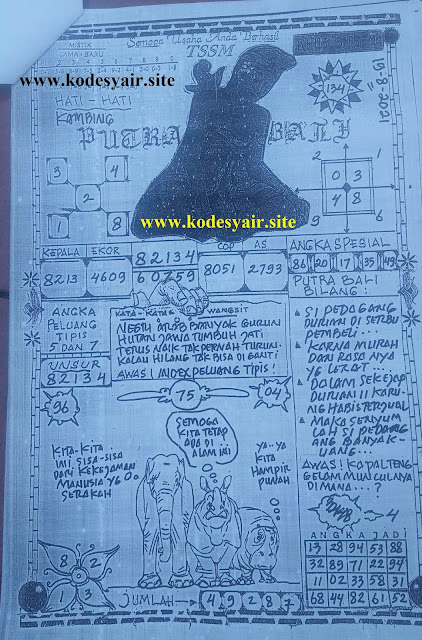 Semoga Usaha Anda Berhasil
TSSM
MISTIK
LAMA = BARU
www.kodesyair.site
HATI - HATI
KAMBING
PUTRA BALI
134
15-8-2021
3 4
2
1 8
2 1
0 3
4 8
9 6
www.kodesyair.site
KEPALA EKOR
8213 4609
82134
60759
COP AS
8051 2793
ANGKA SPESIAL
86 20 17 35 49
ANGKA
PELUANG
TIPIS
5 DAN 7
UNSUR
82134
KATA-KATA WANGSIT
NEGRI ARAB BANYAK GURUN
HUTAN JAWA TUMBUH JATI
TERUS NAIK TAK PERNAH TURUN
KALAU HILANG TAK BISA DI GANTI
AWAS! INDEX PELUANG TIPIS!
PUTRA BALI
BILANG:
SI PEDAGANG
DURIAN DI SERBU
PEMBELI...
KARNA MURAH
DAN RASA NYA
YG LEZAT...
DALAM SEKEJAP
DURIAN 11 KARU-
NG HABIS TERJUAL
MAKA SENYUM
LAH SI PEDAG-
ANG BANYAK
UANG...
AWAS! KAPALTENG
GELAM MUNCULNYA
DIMANA...?
96
75
04
SEMOGA
KITA TETAP
ADA DI
ALAM INI
KITA-KITA
INI SISA-SISA
DARI KEKEJAMAN
MANUSIA YG
SERAKAH
YA--YA
KITA
HAMPIR
PUNAH
4
ANGKA JADI
13 28 94 53 88
32 89 71 22 94
11 02 33 58 31
68 44 82 61 52
8 2
1 3
JUMLAH 4 9 2 8 7